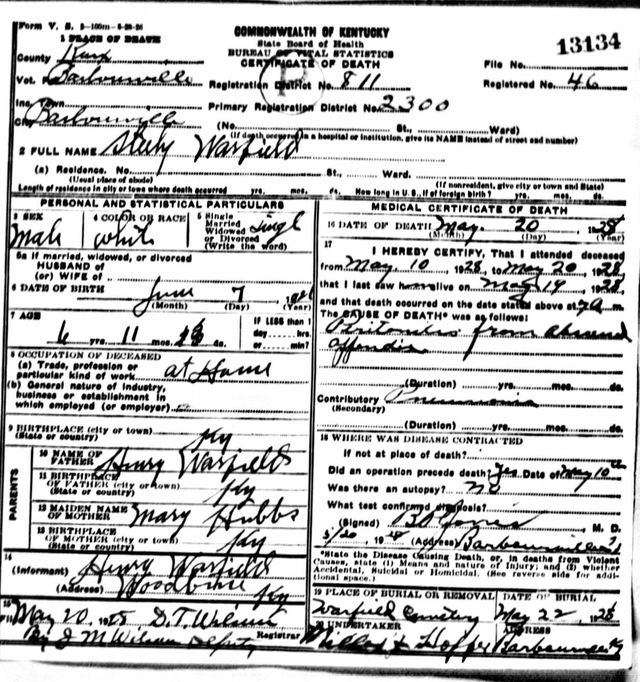 Form V. S. 3-100m-5-26-26
COMMONWEALTH OF KENTUCKY
State Board of Health
BUREAU OF VITAL STATISTICS
CERTIFICATE OF DEATH
13134
File No.
1 PLACE OF DEATH
County Knox
Vot. Pct. Barbourville
Registration District No. 811
Registered No. 46
Inc. Town
City Barbourville
Primary Registration District No. 2300
(No. St., Ward)
(If death occurred in a hospital or institution, give its NAME instead of street and number)
2 FULL NAME Warfield
(a) Residence. No. St., Ward.
(Usual place of abode) (If nonresident, give city or town and State)
Length of residence in city or town where death occurred yrs. mos. ds. How long in U. S., if of foreign birth? yrs. mos. ds.
PERSONAL AND STATISTICAL PARTICULARS
3 SEX
Male
4 COLOR OR RACE
White
5 Single
Married
Widowed
or Divorced
(Write the word)
Single
5a If married, widowed, or divorced
HUSBAND of
(or) WIFE of
6 DATE OF BIRTH
June 7
(Month) (Day) (Year)
7 AGE
6 yrs. 11 mos. ds.
If LESS than 1
day, hrs.
or min?
8 OCCUPATION OF DECEASED
(a) Trade, profession or
particular kind of work at Home
(b) General nature of industry,
business or establishment in
which employed (or employer)
9 BIRTHPLACE (city or town)
(State or country) Ky
PARENTS
10 NAME OF
FATHER Henry Warfield
11 BIRTHPLACE
OF FATHER (city or town)
(State or country) Ky
12 MAIDEN NAME
OF MOTHER Mary Hubbs
13 BIRTHPLACE
OF MOTHER (city or town)
(State or country) Ky
14
(Informant) Henry Warfield
(Address) Woodbine Ky
15
May 20 1928 D. T. Wilson
By J M Wilson Deputy Registrar
MEDICAL CERTIFICATE OF DEATH
16 DATE OF DEATH May 20 1928
(Month) (Day) (Year)
17
I HEREBY CERTIFY, That I attended deceased
from May 10 1928 to May 20 1928
that I last saw him alive on May 19 1928
and that death occurred on the date stated above at 7 a m.
The CAUSE OF DEATH* was as follows:
Peritonitis from
(Duration) yrs. mos. ds.
Contributory Pneumonia
(Secondary)
(Duration) yrs. mos. ds.
18 WHERE WAS DISEASE CONTRACTED
If not at place of death?
Did an operation precede death? Yes Date of May 10
Was there an autopsy? no
What test confirmed diagnosis?
(Signed) Jones M. D.
5/20 1928 (Address) Barbourville Ky
*State the Disease Causing Death, or, in deaths from Violent
Causes, state (1) Means and nature of Injury; and (2) whether
Accidental, Suicidal or Homicidal. (See reverse side for addi-
tional space.)
19 PLACE OF BURIAL OR REMOVAL
Warfield Cemetery
DATE OF BURIAL
May 22 1928
20 UNDERTAKER
ADDRESS
Barbourville Ky